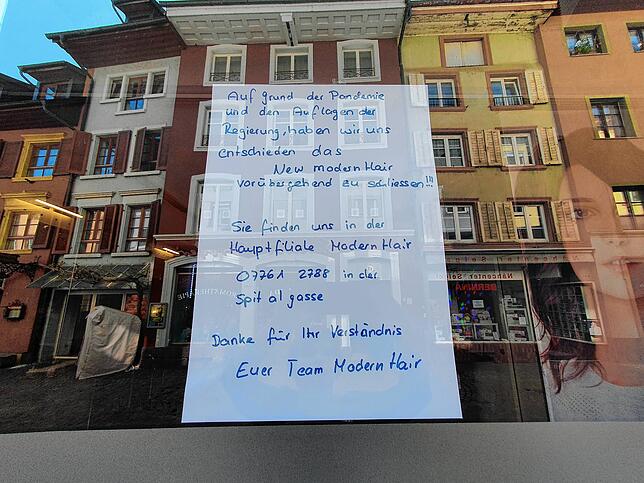 Auf grund der Pandemie
und den Auflagen der
Regierung, haben wir uns
entschieden das
New modern Hair
vorübergehend zu schliessen!!!
Sie finden uns in der
Hauptfiliale Modern Hair
07761 2788 in der
Spitalgasse
Danke für Ihr Verständnis
Euer Team Modern Hair
Nähcenter
BERNINA